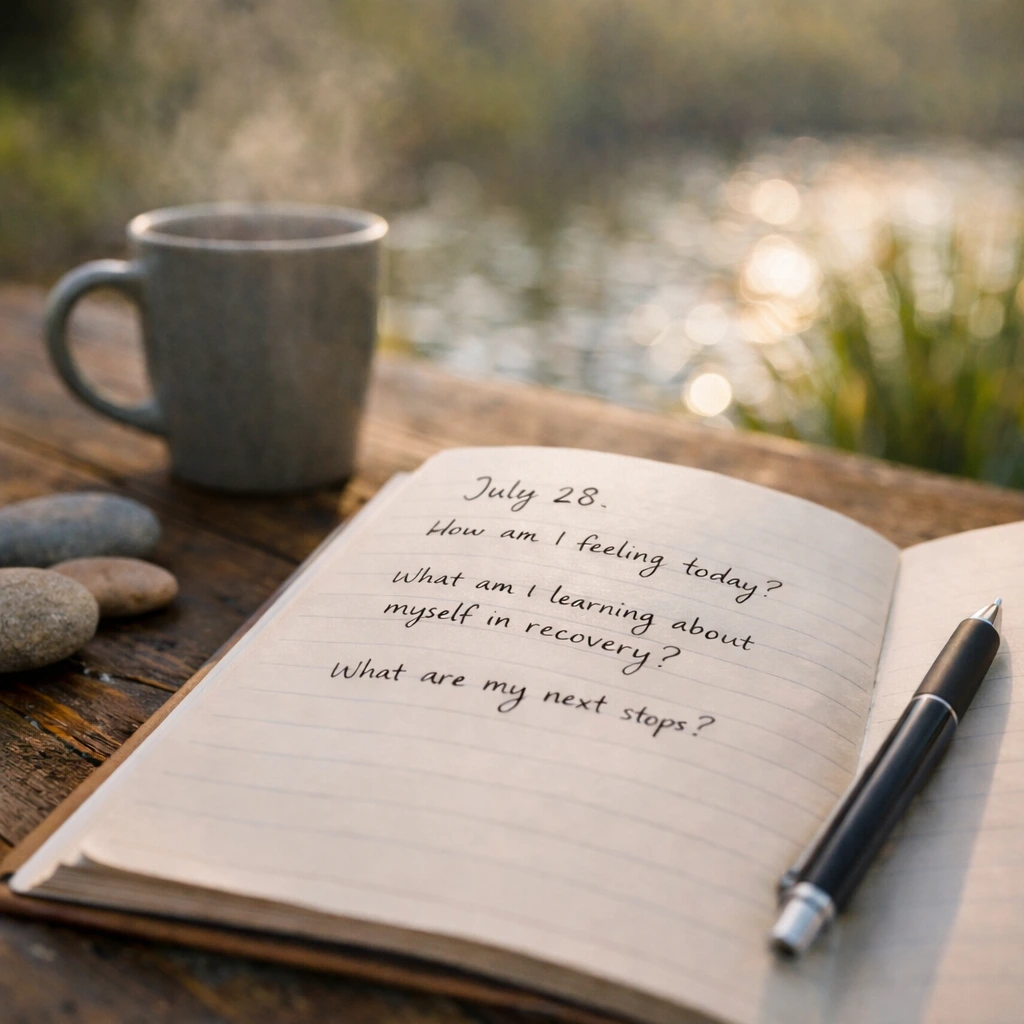 July 28.
How am I feeling today?
What am I learning about
myself in recovery?
What are my next stops?